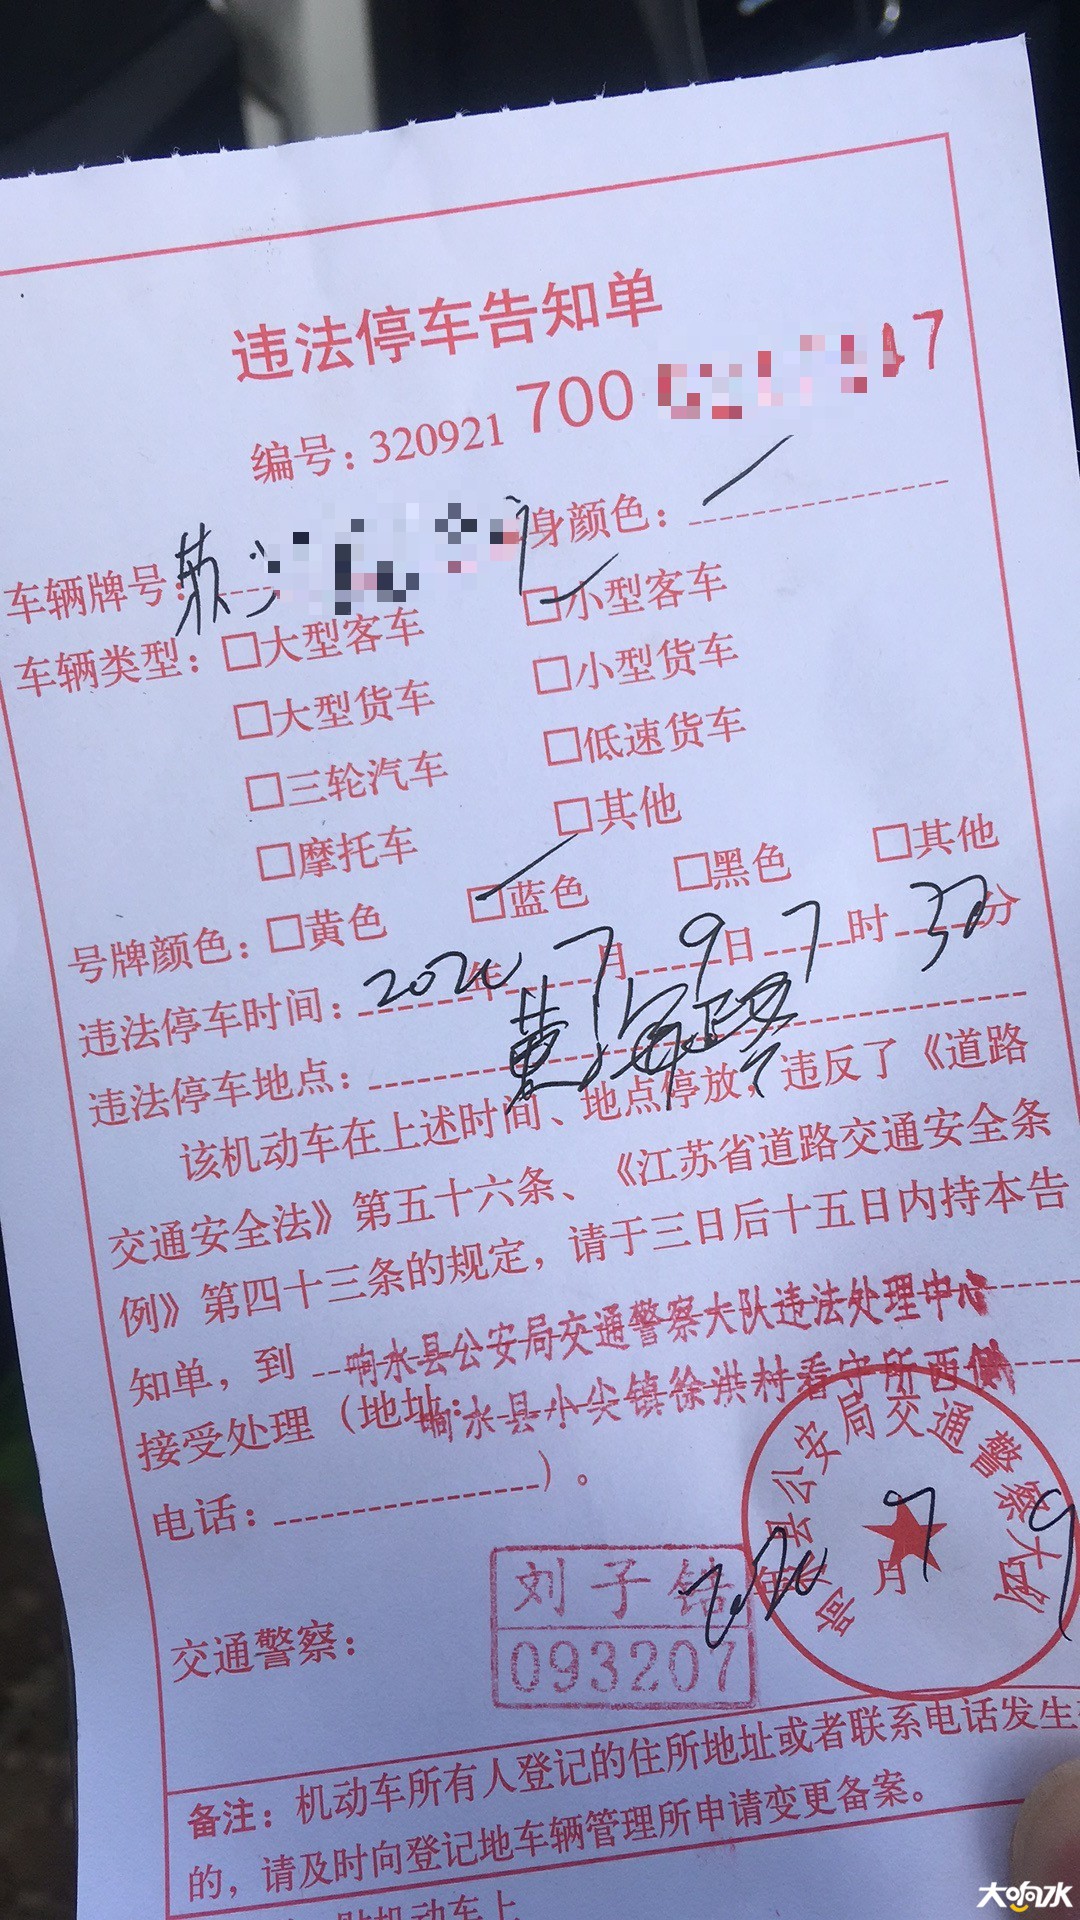 违法停车告知单
编号：320921 700 47
车辆牌号： 苏 身颜色：
车辆类型：□大型客车 □小型客车
□大型货车 □小型货车
□三轮汽车 □低速货车
□摩托车 □其他
号牌颜色：□黄色 □蓝色 □黑色 □其他
违法停车时间：2020年7月9日7时32分
违法停车地点：黄海路
该机动车在上述时间、地点停放，违反了《道路
交通安全法》第五十六条、《江苏省道路交通安全条
例》第四十三条的规定，请于三日后十五日内持本告
知单，到 响水县公安局交通警察大队违法处理中心
接受处理（地址：响水县小尖镇徐洪村看守所西侧
电话： ）。
响水县公安局交通警察大队
2020年7月9
交通警察：
刘子铭
093207
备注：机动车所有人登记的住所地址或者联系电话发生
的，请及时向登记地车辆管理所申请变更备案。
大响水